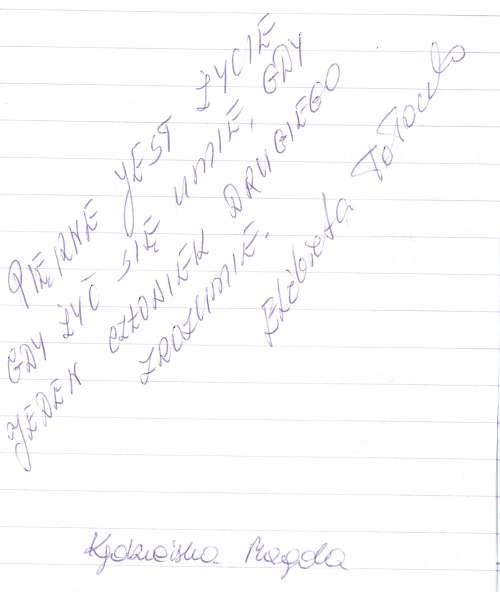 PIĘKNE JEST ŻYCIE
GDY ŻYĆ SIĘ UMIE, GDY
JEDEN CZŁOWIEK DRUGIEGO
ZROZUMIE.
Elżbieta
Magda